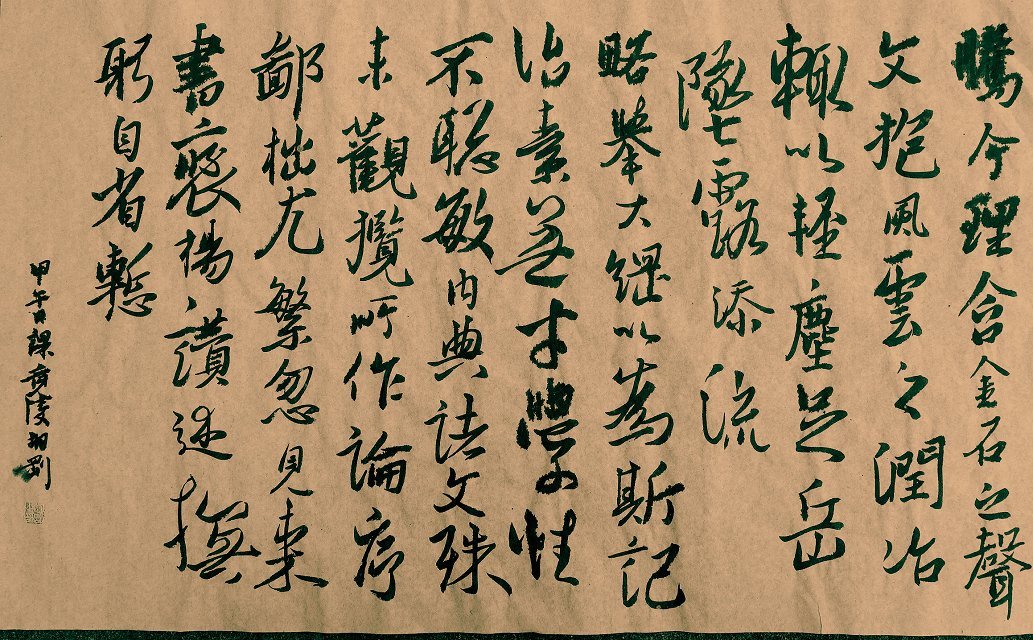 騰今理含金石之聲
文抱風雲之潤治
輒以輕塵足岳
墜露添流
略舉大綱以為斯記
治素無才學性
不聰敏內典諸文殊
未觀攬所作論序
鄙拙尤繁忽見來
書褒揚讚述撫
躬自省慙
甲午日課